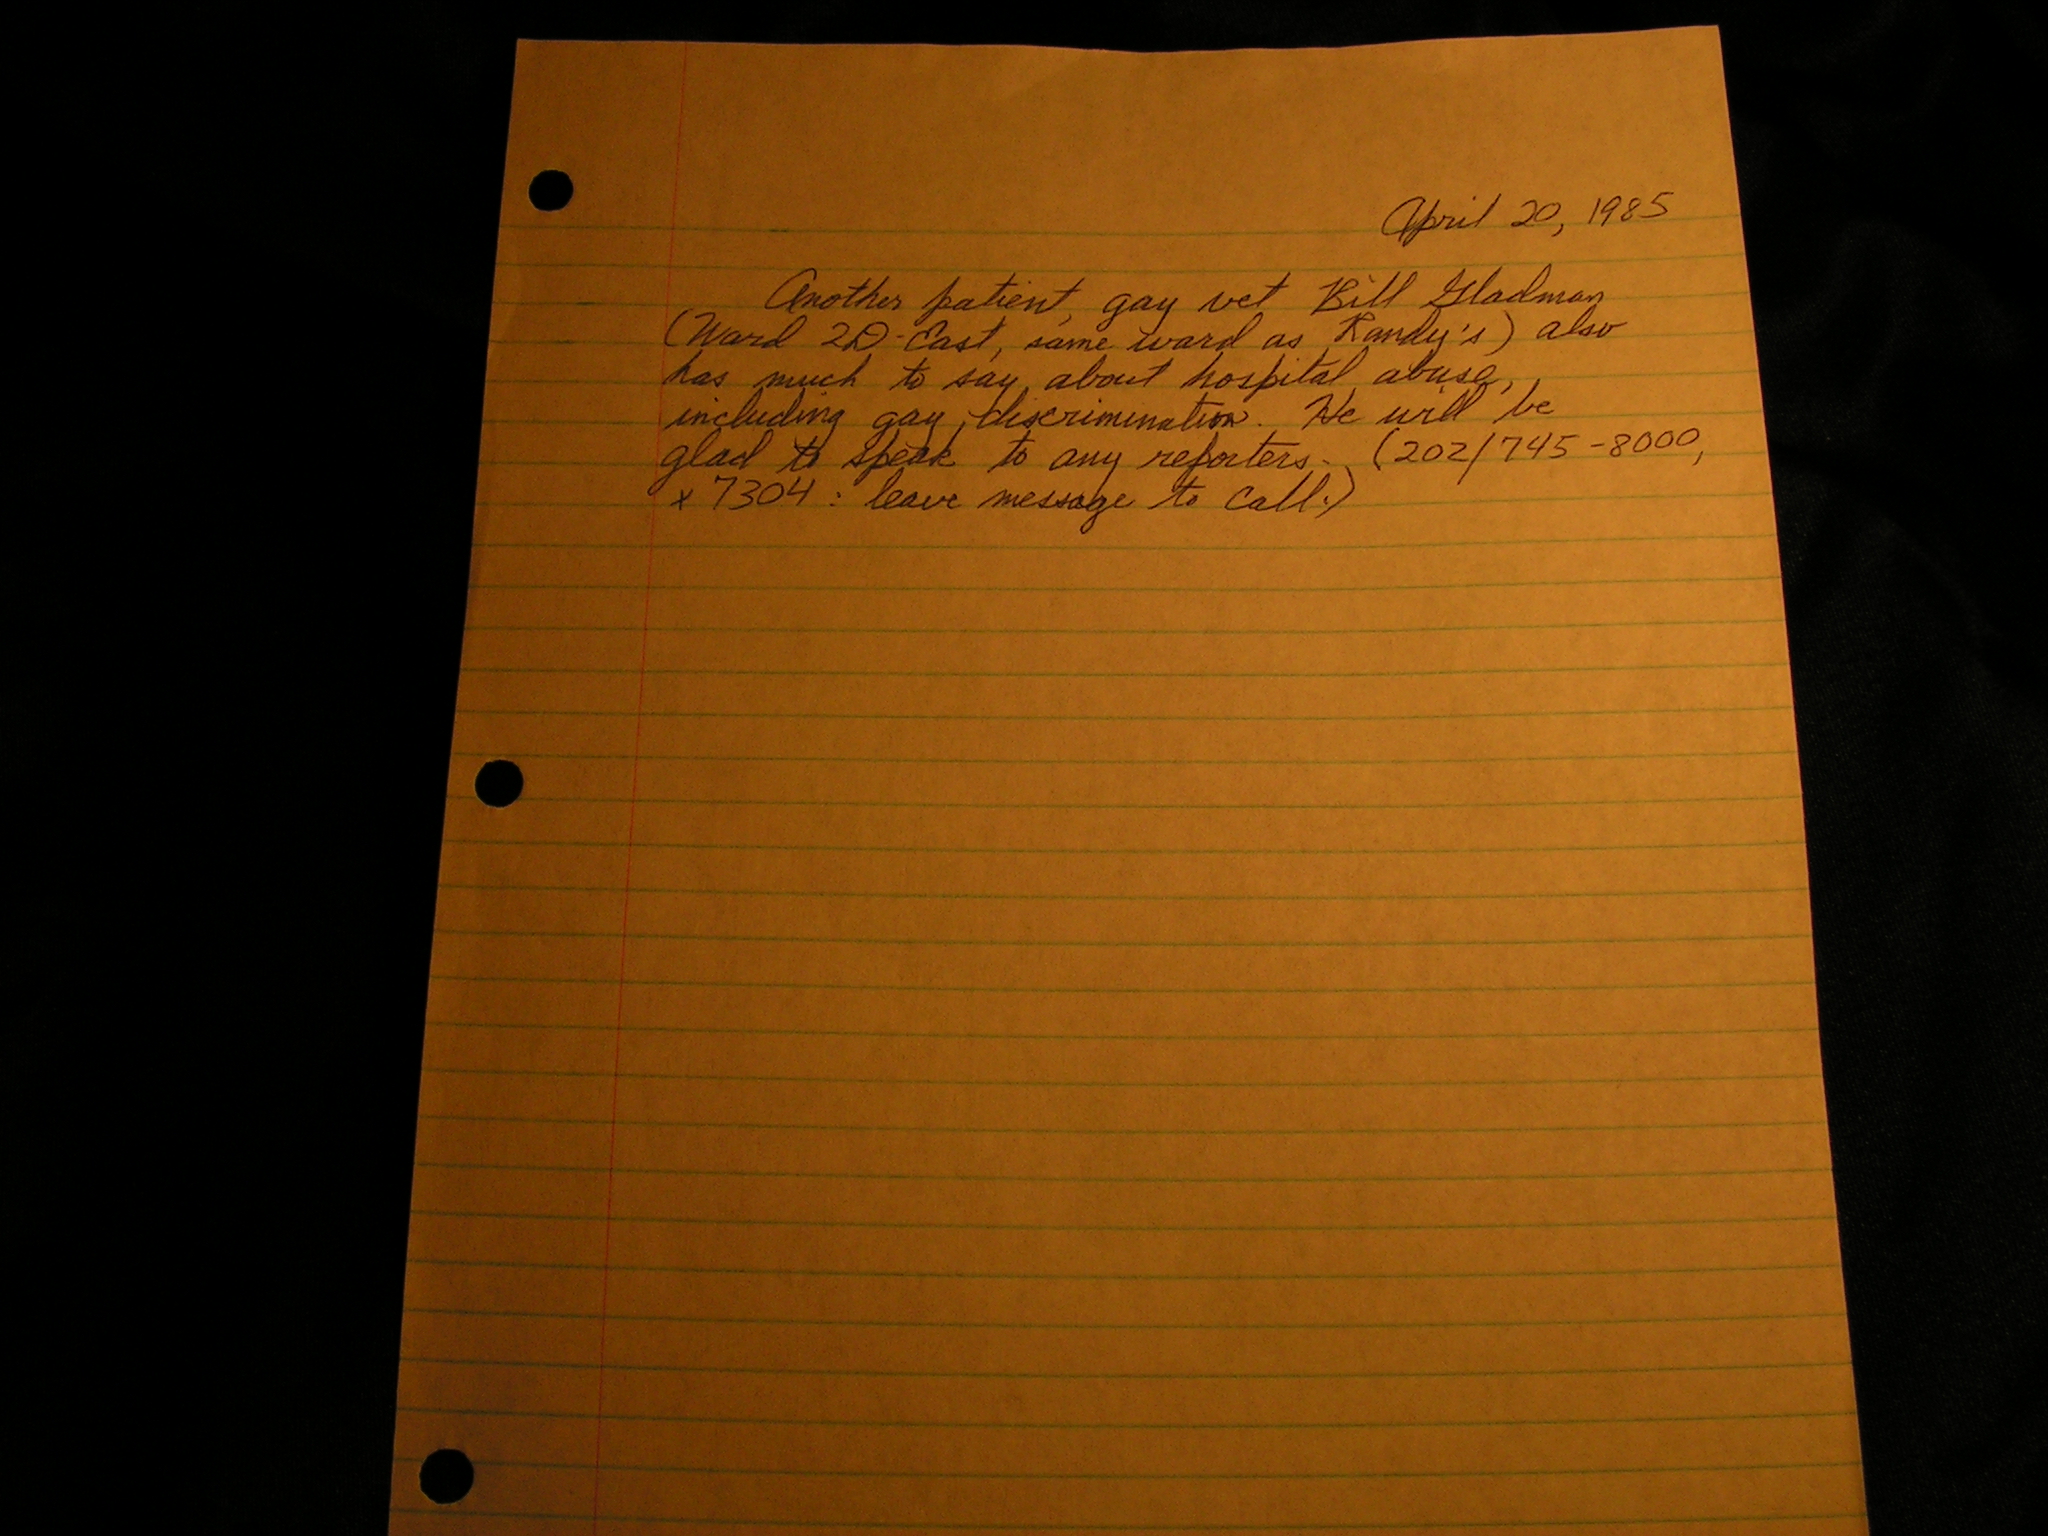 April 20, 1985
Another patient, gay vet Bill Gladman
(Ward 2D-East, same ward as Randy's) also
has much to say about hospital abuse,
including gay discrimination. He will be
glad to speak to any reporters. (202/745-8000,
x 7304: leave message to call.)